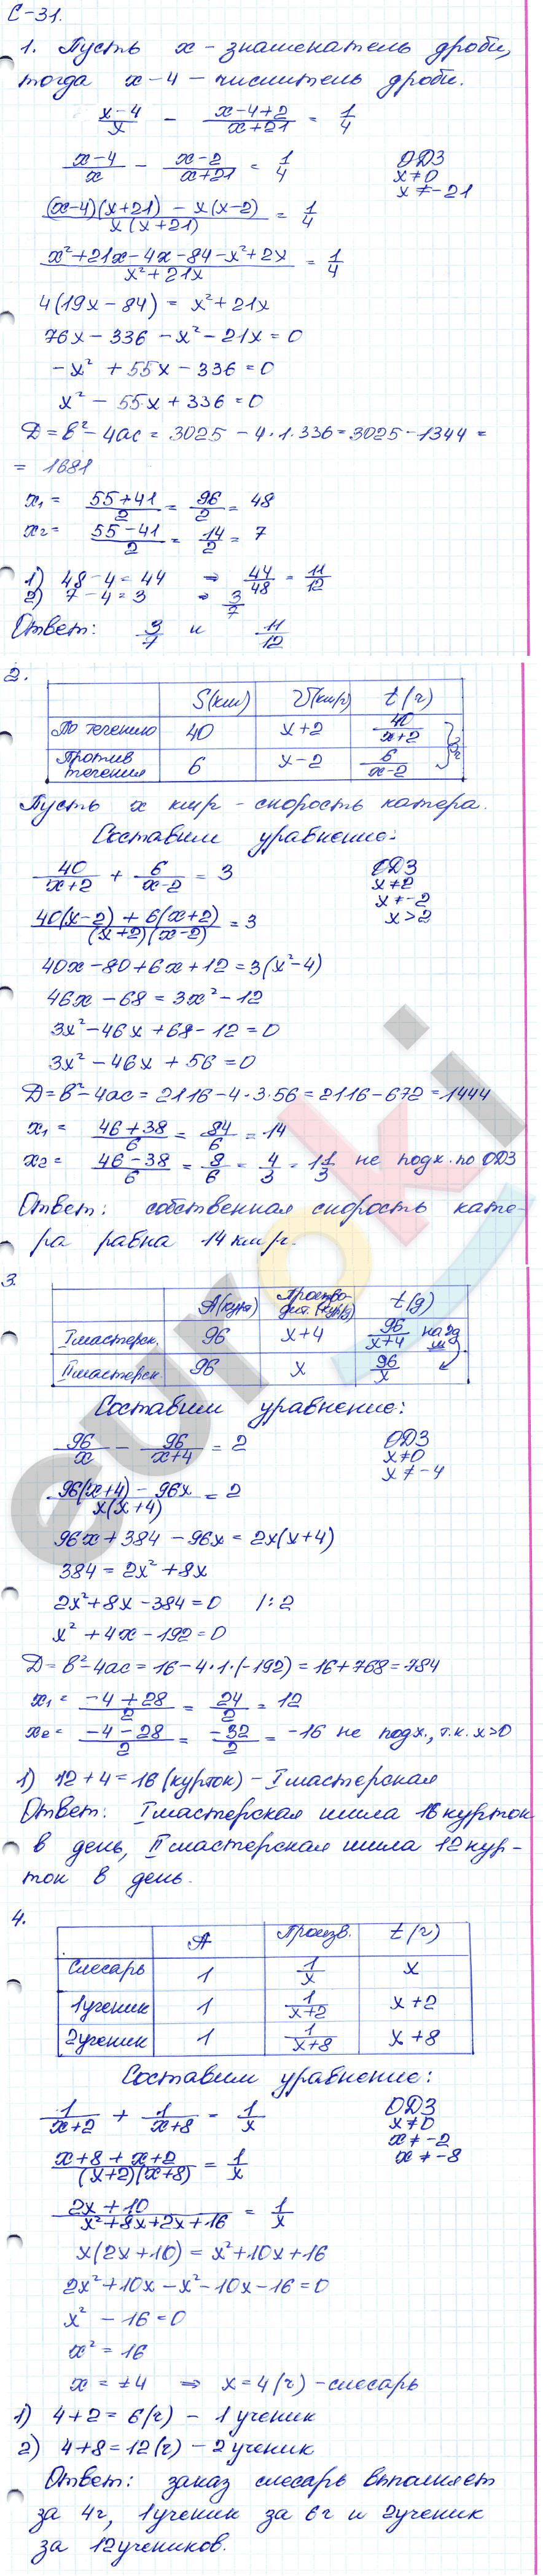 С-31.
1. Пусть x - знаменатель дроби,
тогда x-4 - числитель дроби.
(x-4)/x - (x-4+2)/(x+21) = 1/4
(x-4)/x - (x-2)/(x+21) = 1/4 ОДЗ
x≠0
x≠-21
((x-4)(x+21) - x(x-2))/(x(x+21)) = 1/4
(x²+21x-4x-84-x²+2x)/(x²+21x) = 1/4
4(19x-84) = x²+21x
76x-336-x²-21x=0
-x²+55x-336=0
x²-55x+336=0
D=b²-4ac = 3025-4·1·336=3025-1344=
= 1681
x₁ = (55+41)/2 = 96/2 = 48
x₂= (55-41)/2 = 14/2 = 7
1) 48-4=44 ⇒ 44/48 = 11/12
2) 7-4=3 ⇒ 3/7
Ответ: 3/7 и 11/12
2.
S(км) V(км/ч) t(ч)
По течению 40 x+2 40/(x+2)
Против течения 6 x-2 6/(x-2)
3ч
Пусть x км/ч - скорость катера.
Составим уравнение:
40/(x+2) + 6/(x-2) = 3 ОДЗ
x≠2
x≠-2
x>2
(40(x-2)+6(x+2))/((x+2)(x-2)) = 3
40x-80+6x+12=3(x²-4)
46x-68=3x²-12
3x²-46x+68-12=0
3x²-46x+56=0
D=b²-4ac=2116-4·3·56=2116-672=1444
x₁ = (46+38)/6 = 84/6 = 14
x₂= (46-38)/6 = 8/6 = 4/3 = 1 1/3 не подх. по ОДЗ
Ответ: собственная скорость кате-
ра равна 14 км/ч.
3.
A(курт) Произво-дит.(курт/д) t(д)
I мастерск. 96 x+4 96/(x+4) на 2д м
II мастерск. 96 x 96/x
Составим уравнение:
96/x - 96/(x+4) = 2 ОДЗ
x≠0
x≠-4
(96(x+4)-96x)/(x(x+4)) = 2
96x+384-96x=2x(x+4)
384=2x²+8x
2x²+8x-384=0 /:2
x²+4x-192=0
D=b²-4ac=16-4·1·(-192)=16+768=784
x₁ = (-4+28)/2 = 24/2 = 12
x₂= (-4-28)/2 = -32/2 = -16 не подх., т.к. x>0
1) 12+4=16 (курток) - I мастерская
Ответ: I мастерская шила 16 курток
в день, II мастерская шила 12 кур-
ток в день.
4.
A Произв. t(ч)
Слесарь 1 1/x x
1ученик 1 1/(x+2) x+2
2ученик 1 1/(x+8) x+8
Составим уравнение:
1/(x+2) + 1/(x+8) = 1/x ОДЗ
x≠0
x≠-2
x≠-8
(x+8+x+2)/((x+2)(x+8)) = 1/x
(2x+10)/(x²+8x+2x+16) = 1/x
x(2x+10)=x²+10x+16
2x²+10x-x²-10x-16=0
x²-16=0
x²=16
x=±4 ⇒ x=4(ч) - слесарь
1) 4+2=6(ч) - 1 ученик
2) 4+8=12(ч) - 2 ученик
Ответ: заказ слесарь выполняет
за 4ч, 1ученик за 6ч и 2ученик
за 12учеников.
euroki